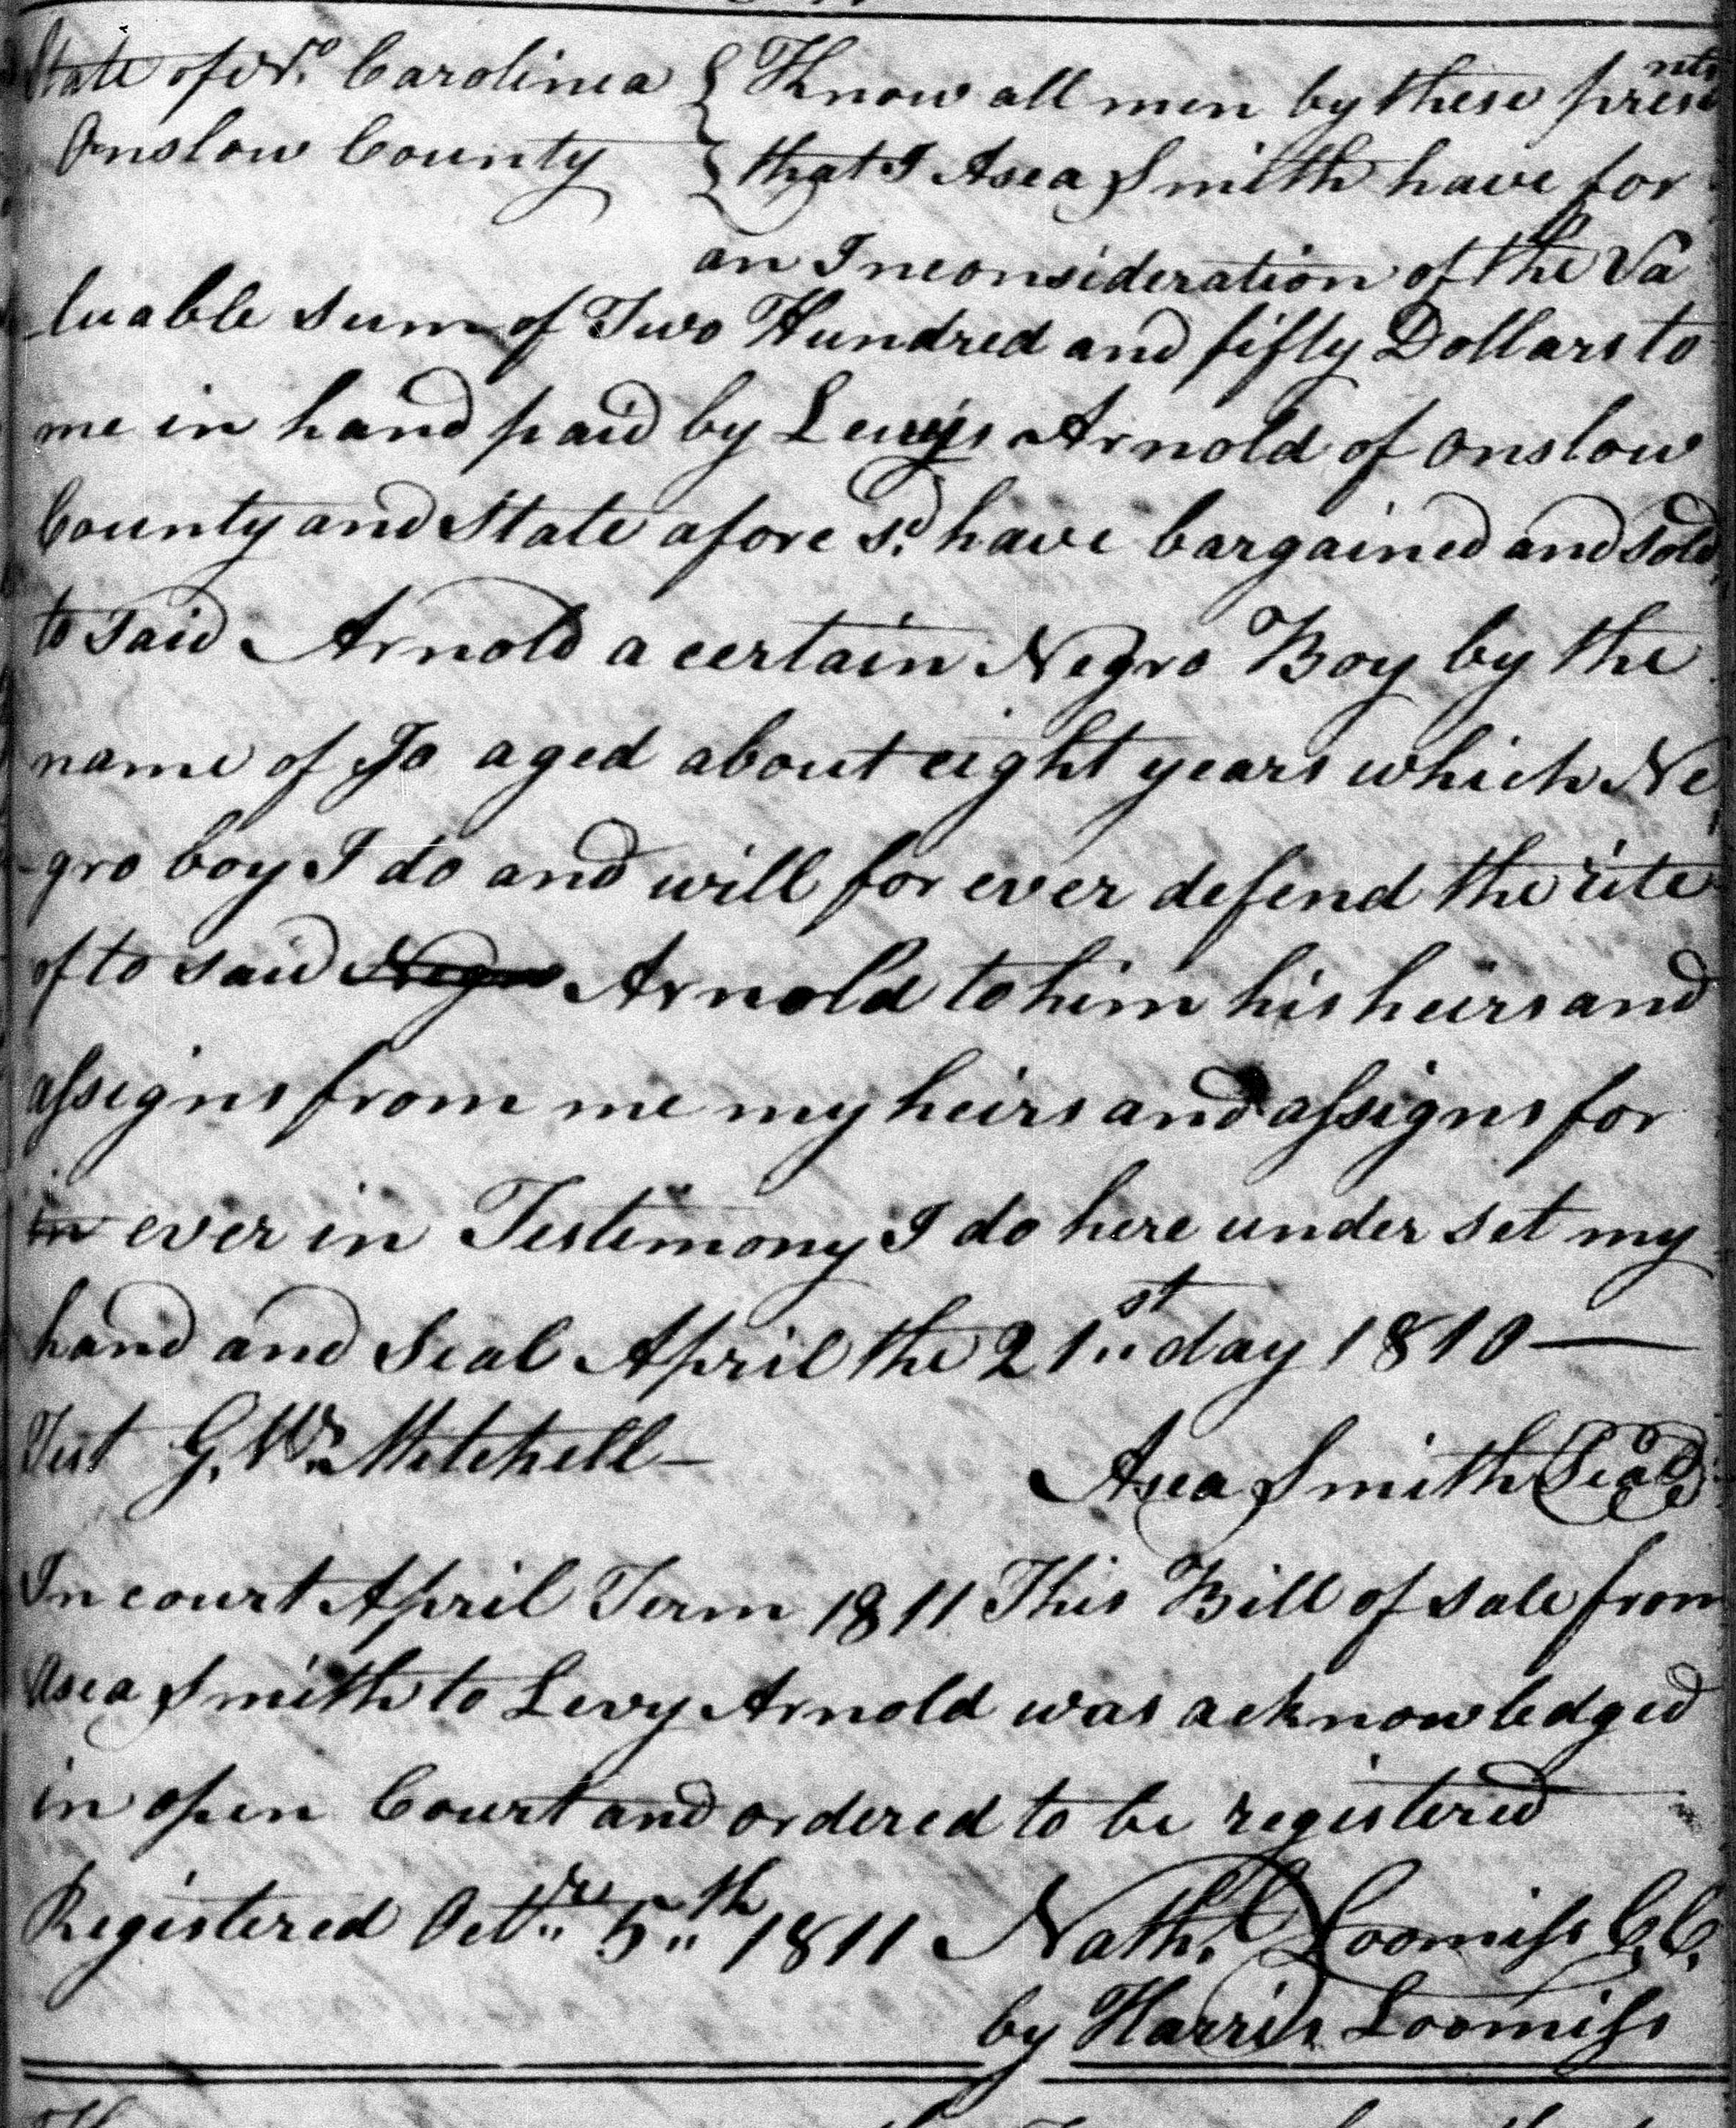 State of No. Carolina } Know all men by these presents
Onslow County } that I Asea Smith have for
an Inconsideration of the Va
luable sum of Two Hundred and fifty Dollars to
me in hand paid by Arnold of Onslow
County and State afore sd. have bargained and sold
to said Arnold a certain Negro Boy by the
name of Jo aged about eight years which Ne
-gro boy I do and will for ever defend the rite
of to said Negro Arnold to him his heirs and
assigns from me my heirs and assigns for
in ever in Testimony I do here under set my
hand and Seal April the 21st day 1810 —
Test G. Mitchell — Asea Smith (Seal)
In court April Term 1811 This Bill of sale from
Asea Smith to Levy Arnold was acknowledged
in open Court and ordered to be registered
Registered Octr. 5th 1811 Nathl. Loomiss C.C.
by Harris Loomiss